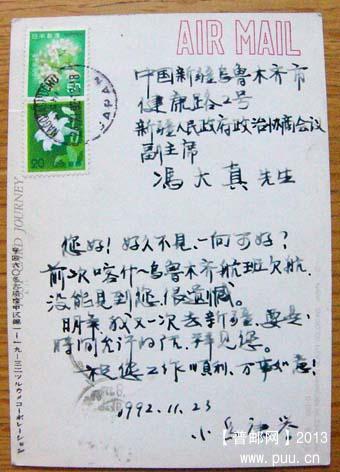 AIR MAIL
日本郵便
NIPPON
20
JAPAN
中国新疆乌鲁木齐市
健康路2号
新疆人民政府政治协商会议
副主席
冯大真先生
您好!好久不见,一向可好?
前次喀什~乌鲁木齐航班欠航,
没能見到您,很遗憾。
明年我又一次去新疆,要是
時間允许的话,拜见您。
祝您工作順利,万事如意!
1992.11.23
小島
JOURNEY
【普邮网】2013
www.puu.cn